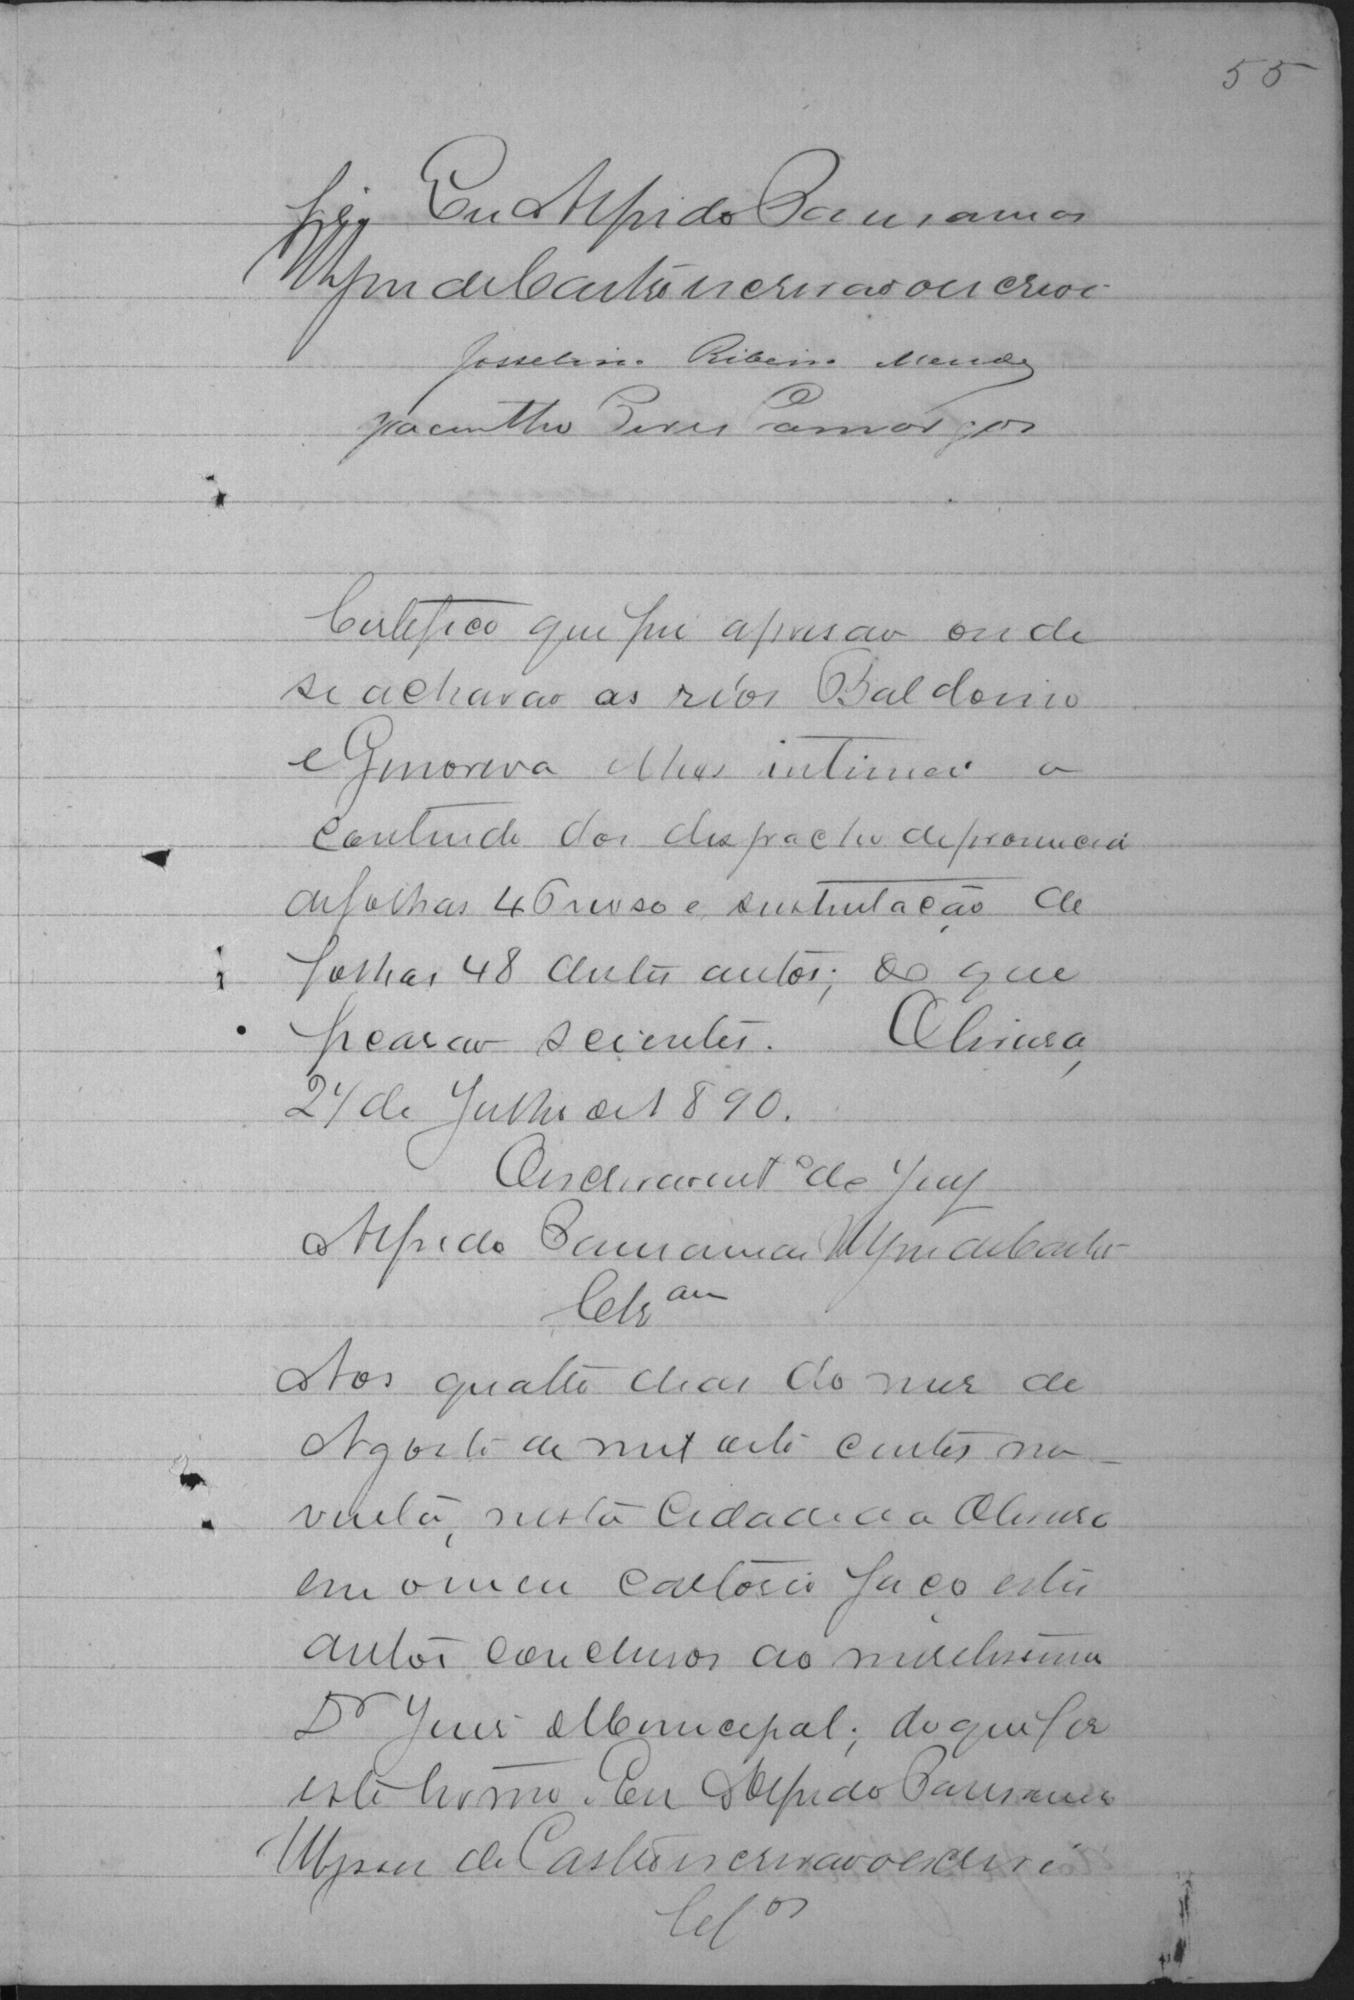 55
fiz. Eu Alfredo Pausamas
de Castro escrivão o escrevi
Josselino Ribeiro Mendes
Jacintho Peres Camargos
Certefico que fui a prisão onde
se achavão as réos Baldoino
e Genoveva e lhes intimei o
contiudo dos despacho de pronuncia
de folhas 46 verso e sustentação de
folhas 48 destes autos; do que
ficarão scientes.
24 de Julho de 1890.
de Juiz
Alfredo Pausamas de Castro
Clsam
Aos quatro dias do mes de
Agosto de mil oito centos no-
venta, nesta Cidade da
em o meu cartório faço estes
autos conclusos ao meretissimo
Dr Juis Municipal; do que fis
este termo. Eu Alfredo Pausamas
de Castro escrivão o escrevi
Clos